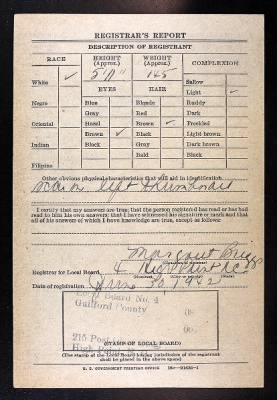 REGISTRAR'S REPORT
DESCRIPTION OF REGISTRANT
RACE HEIGHT (Approx.) WEIGHT (Approx.) COMPLEXION
White ✓ 145 Sallow
EYES HAIR Light ✓
Negro Blue Blonde Ruddy
Gray Red Dark
Oriental Hazel Brown ✓ Freckled
Brown ✓ Black Light brown
Indian Black Gray Dark brown
Bald Black
Filipino
Other obvious physical characteristics that will aid in identification
Scar on left
I certify that my answers are true; that the person registered has read or has had
read to him his own answers; that I have witnessed his signature or mark and that
all of his answers of which I have knowledge are true, except as follows:
Margaret
Registrar for Local Board 4 High Point N.C.
Date of registration June 30, 1942
Local Board No. 4
Guilford County
215 Post
High Point
(STAMP OF LOCAL BOARD)
(The stamp of the Local Board having jurisdiction of the registrant
shall be placed in the above space)
U. S. GOVERNMENT PRINTING OFFICE